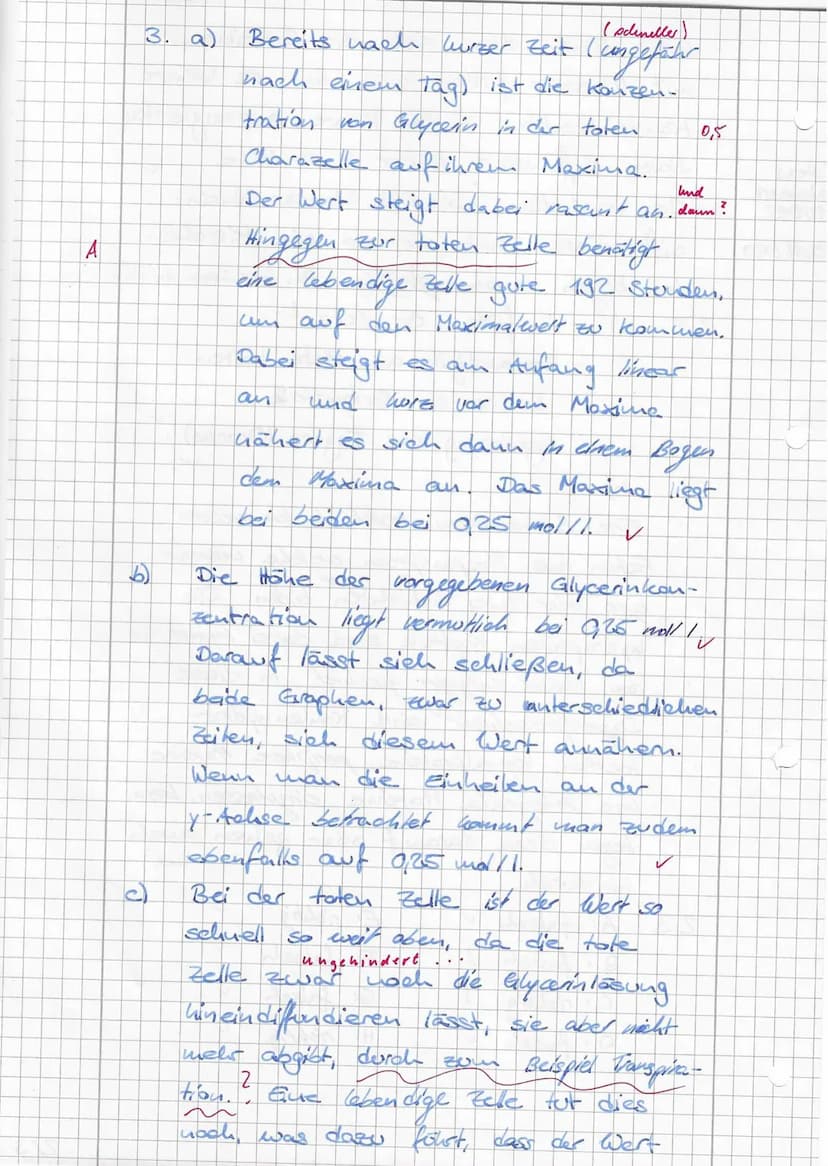 (schneller)
3. a) Bereits nach kurzer Zeit (ungefähr
nach einem Tag) ist die Konzen-
tration von Glycerin in der toten 0,5
Charazelle auf ihrem Maxima.
Der Wert steigt dabei rasant an. und dann?
A Hingegen zur toten Zelle benötigt
eine lebendige Zelle gute 192 Stunden,
um auf den Maximalwert zu kommen.
Dabei steigt es am Anfang linear
an und kurz vor dem Maxima
nähert es sich dann in einem Bogen
dem Maxima an. Das Maxima liegt
bei beiden bei 0,25 mol/l. ✓
b) Die Höhe der vorgegebenen Glycerinkon-
zentration liegt vermutlich bei 0,25 mol/l. ✓
Darauf lässt sich schließen, da
beide Graphen, zwar zu unterschiedlichen
Zeiten, sich diesem Wert annähern.
Wenn man die Einheiten an der
y-Achse betrachtet kommt man zudem
ebenfalls auf 0,25 mol/l. ✓
c) Bei der toten Zelle ist der Wert so
schnell so weit oben, da die tote
ungehindert ...
Zelle zwar noch die Glycerinlösung
hineindiffundieren lässt, sie aber nicht
mehr abgibt, durch zum Beispiel Transpira-
tion. ? Eine lebendige Zelle tut dies
noch, was dazu führt, dass der Wert